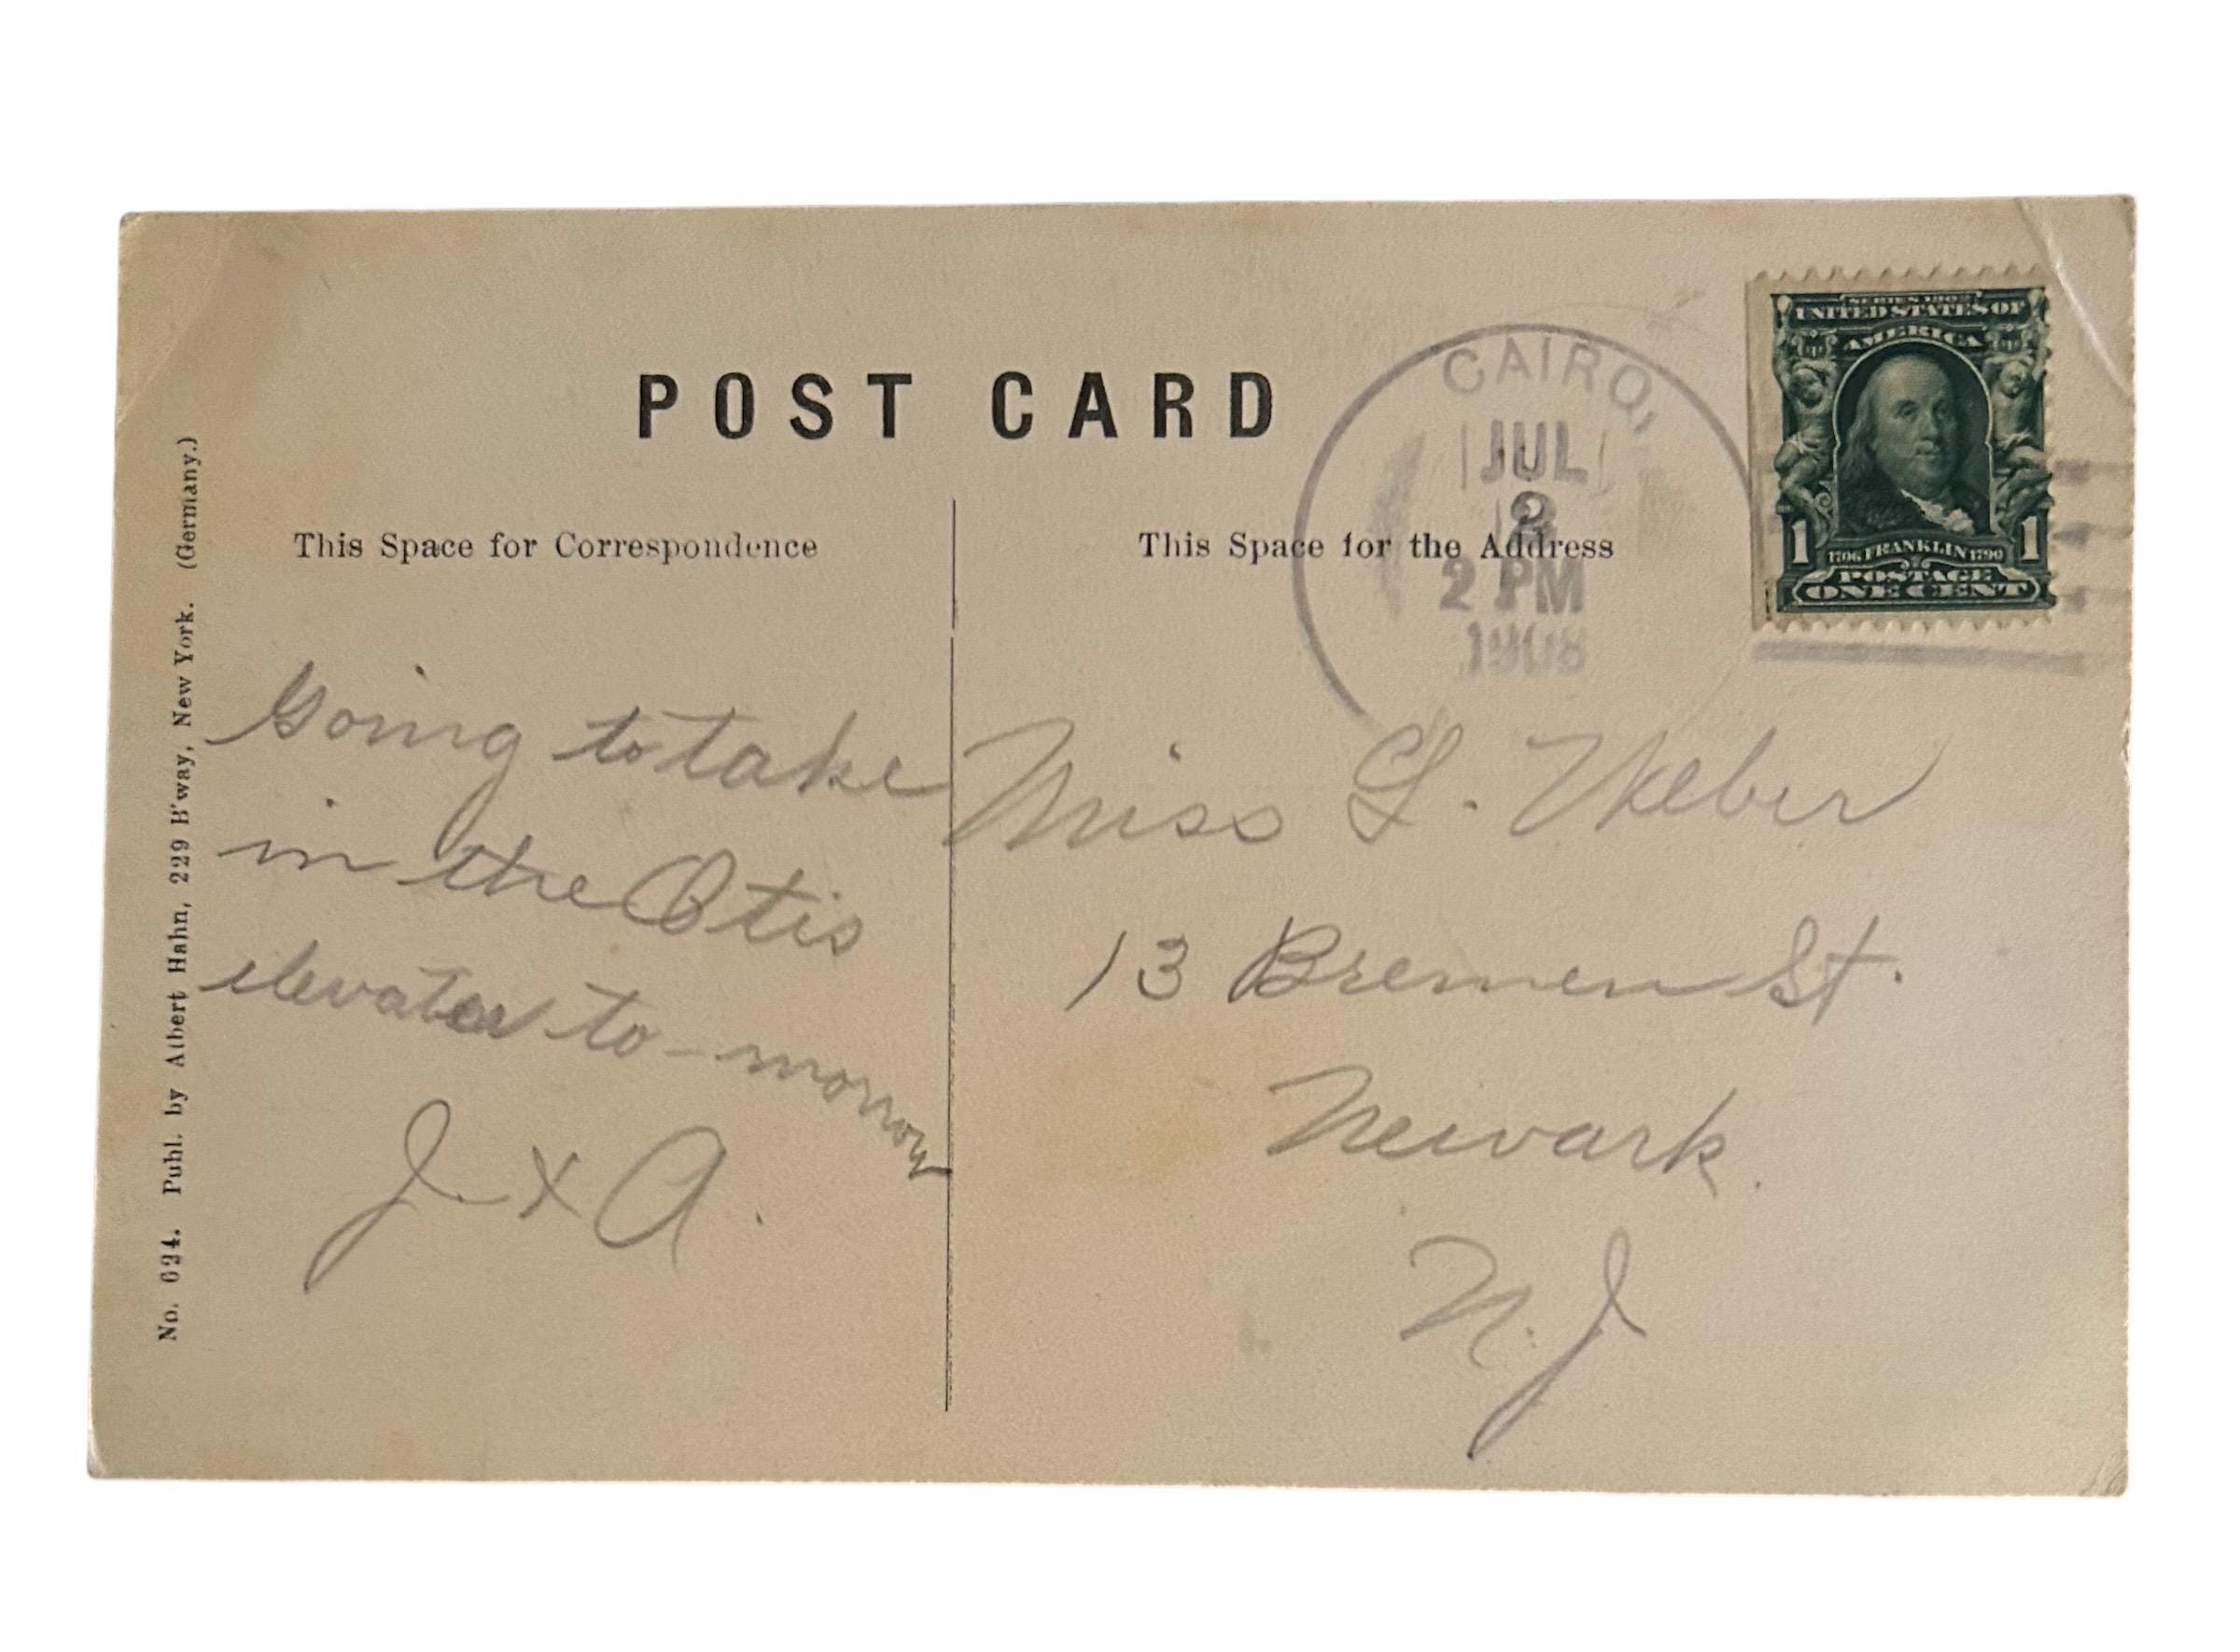 POST CARD
This Space for Correspondence
This Space for the Address
CAIRO,
JUL
2 PM
1908
SERIES 1902
UNITED STATES OF
AMERICA
1 1706 FRANKLIN 1790 1
POSTAGE
ONE CENT
No. 694. Publ. by Albert Hahn, 229 B'way, New York. (Germany.)
Going to take
in the Otis
elevator to-morrow
J. + A.
Miss L. Weber
13 Bremen St.
Newark.
N.J